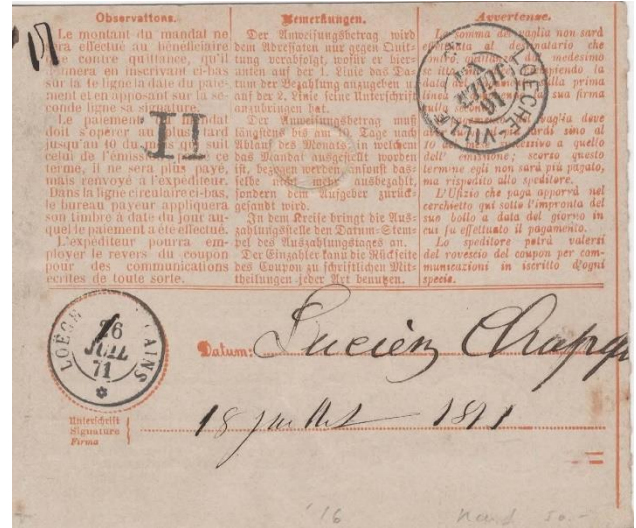 Observations.
Le montant du mandat ne
sera effectué au bénéficiaire
que contre quittance, qu'il
donnera en inscrivant ci-bas
sur la 1re ligne la date du paie-
ment et en apposant sur la se-
conde ligne sa signature.
Le paiement du mandat
doit s'opérer au plus tard
jusqu'au 10 du mois qui suit
celui de l'émission. Passé ce
terme, il ne sera plus payé,
mais renvoyé à l'expéditeur.
Dans la ligne circulaire ci-bas,
le bureau payeur appliquera
son timbre à date du jour au-
quel le paiement a été effectué.
L'expéditeur pourra em-
ployer le revers du coupon
pour des communications
écrites de toute sorte.
II
Bemerkungen.
Der Anweisungsbetrag wird
dem Adressaten nur gegen Quit-
tung verabfolgt, wofür er hier-
unten auf der 1. Linie das Da-
tum der Bezahlung anzugeben u.
auf der 2. Linie seine Unterschrift
anzubringen hat.
Der Anweisungsbetrag muß
längstens bis am 10. Tage nach
Ablauf des Monats, in welchem
das Mandat ausgestellt worden
ist, bezogen werden, ansonst das-
selbe nicht mehr ausbezahlt,
sondern dem Aufgeber zurück-
gesandt wird.
In dem Kreise bringt die Aus-
zahlungsstelle den Datum-Stem-
pel des Auszahlungstages an.
Der Einzahler kann die Rückseite
des Coupon zu schriftlichen Mit-
theilungen jeder Art benutzen.
Avvertenze.
La somma del vaglia non sarà
al destinatario che
quittanza, medesimo
la
data prima
la sua firma
vaglia deve
tardi sino al
10 del successivo a quello
dell' emissione; scorso questo
termine egli non sarà più pagato,
ma rispinto allo speditore.
L'Ufizio che paga apporrà nel
cerchietto qui sotto l'impronta del
suo bollo a data del giorno in
cui fu effettuato il pagamento.
Lo speditore potrà valersi
del rovescio del coupon per com-
municazioni in iscritto d'ogni
specie.
LOECHE-VILLE
LOËCHE BAINS
26
JUIL
71
Datum: Lucien
Unterschrift
Signature
Firma
18 juillet 1871